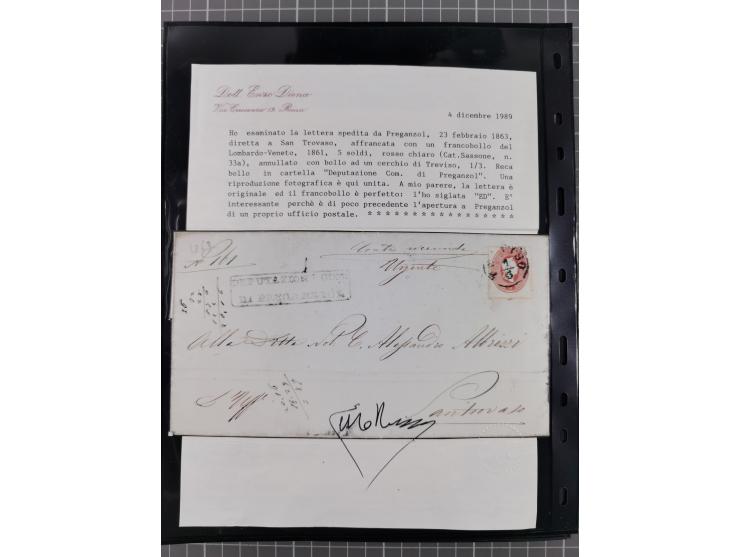 Dott. Enzo Diena
Via Crescenzio 19 Roma
4 dicembre 1989
Ho esaminato la lettera spedita da Preganzol, 23 febbraio 1863,
diretta a San Trovaso, affrancata con un francobollo del
Lombardo-Veneto, 1861, 5 soldi, rosso chiaro (Cat.Sassone, n.
33a), annullato con bollo ad un cerchio di Treviso, 1/3. Reca
bollo in cartella "Deputazione Com. di Preganzol". Una
riproduzione fotografica è qui unita. A mio parere, la lettera è
originale ed il francobollo è perfetto: l'ho siglata "ED". E'
interessante perchè è di poco precedente l'apertura a Preganzol
di un proprio ufficio postale. * * * * * * * * * * * * * * * * *
N 161
Urgente
DEPUTAZIONE COM.
DI PREGANZIOL
1/3
Alla Ditta Nob. C. Alessandro Albrizzi
Santrovaso